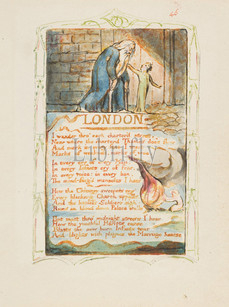 LONDON
I wander thro' each charter'd street,
Near where the charter'd Thames does flow
And mark in every face I meet
Marks of weakness, marks of woe.
In every cry of every Man,
In every Infants cry of fear,
In every voice; in every ban,
The mind-forg'd manacles I hear
How the Chimney-sweepers cry
Every blackning Church appalls,
And the hapless Soldiers sigh
Runs in blood down Palace walls
But most thro' midnight streets I hear
How the youthful Harlots curse
Blasts the new-born Infants tear
And blights with plagues the Marriage hearse